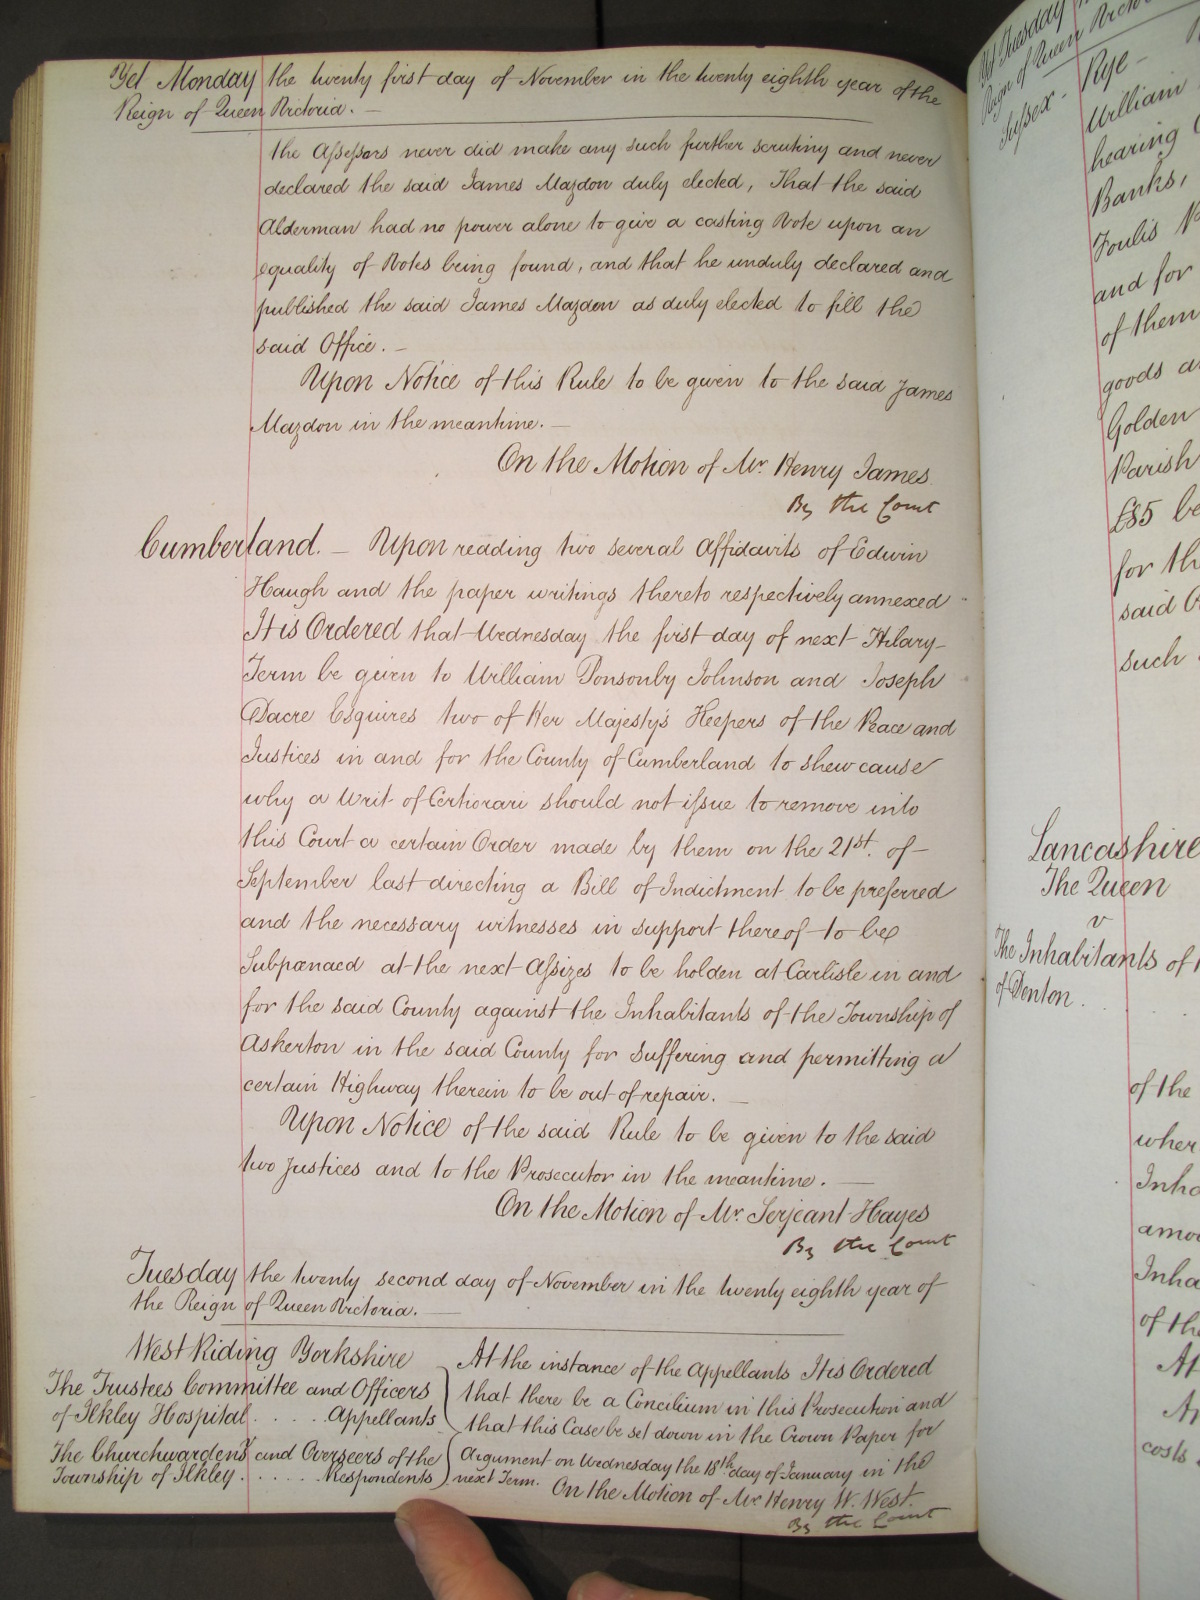 Yet Monday the twenty first day of November in the twenty eighth year of the
Reign of Queen Victoria. —
the Assessors never did make any such further scrutiny and never
declared the said James Mazdon duly elected, That the said
Alderman had no power alone to give a casting Vote upon an
equality of Votes being found, and that he unduly declared and
published the said James Mazdon as duly elected to fill the
said Office. —
Upon Notice of this Rule to be given to the said James
Mazdon in the meantime. —
On the Motion of Mr. Henry James
By the Court
Cumberland. — Upon reading two several Affidavits of Edwin
Haugh and the paper writings thereto respectively annexed
It is Ordered that Wednesday the first day of next Hilary
Term be given to William Ponsonby Johnson and Joseph
Dacre Esquires two of Her Majesty's Keepers of the Peace and
Justices in and for the County of Cumberland to shew cause
why a Writ of Certiorari should not issue to remove into
this Court a certain Order made by them on the 21st. of
September last directing a Bill of Indictment to be preferred
and the necessary witnesses in support thereof to be
Subpœnaed at the next Assizes to be holden at Carlisle in and
for the said County against the Inhabitants of the Township of
Askerton in the said County for suffering and permitting a
certain Highway therein to be out of repair. —
Upon Notice of the said Rule to be given to the said
two Justices and to the Prosecutor in the meantime. —
On the Motion of Mr. Serjeant Hayes
By the Court
Tuesday the twenty second day of November in the twenty eighth year of
the Reign of Queen Victoria. —
West Riding Yorkshire
The Trustees Committee and Officers
of Ilkley Hospital . . . . . Appellants
The Churchwardens and Overseers of the
Township of Ilkley . . . . . Respondents
At the instance of the Appellants It is Ordered
that there be a Concilium in this Prosecution and
that this Case be set down in the Crown Paper for
Argument on Wednesday the 18th day of January in the
next Term. On the Motion of Mr. Henry W. West.
By the Court
Yet Tuesday
Reign of Queen Victoria
Sussex - Rye -
William
hearing
Banks,
Foulis
and for
of them
goods
Golden
Parish
£85 be
for th
said
such
Lancashire
The Queen
v
The Inhabitants of
of Denton.
of the
wher
Inha
amou
Inha
of the
At
costs